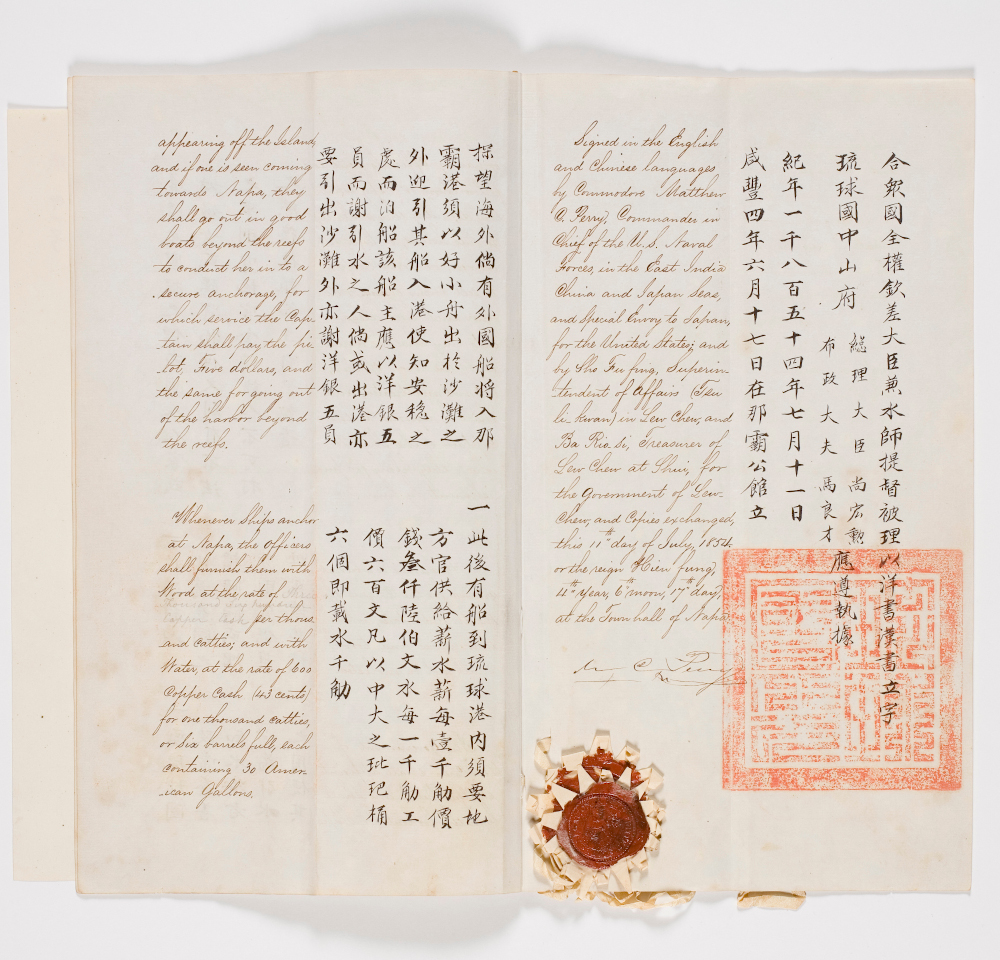 appearing off the Island,
and if one is seen coming
towards Napa, they
shall go out in good
boats beyond the reefs
to conduct her in to a
secure anchorage, for
which service the Cap-
tain shall pay the pi-
lot, Five dollars, and
the same for going out
of the harbor beyond
the reefs.
探望海外倘有外國船將入那
霸港須以好小舟出於沙灘之
外迎引其船入港使知安穩之
處而泊船該船主應以洋銀五
員而謝引水之人倘或出港亦
要引出沙灘外亦謝洋銀五員
Whenever Ships anchor
at Napa, the Officers
shall furnish them with
Wood at the rate of
copper cash per thous-
and catties; and with
Water, at the rate of 600
Copper Cash (43 cents)
for one thousand catties,
or Six barrels full, each
containing 30 Amer-
ican Gallons.
一此後有船到琉球港內須要地
方官供給薪水薪每壹千觔價
錢叄仟陸伯文水每一千觔工
價六百文凡以中大之玭玘桶
六個即載水千觔
Signed in the English
and Chinese Languages
by Commodore Matthew
C. Perry, Commander in
Chief of the U. S. Naval
Forces, in the East India
China and Japan Seas,
and Special Envoy to Japan,
for the United States; and
by Sho Fu fing, Superin-
tendent of Affairs (Tsu
li-kwan) in Lew Chew, and
Ba Rio-si, Treasurer of
Lew Chew at Shui, for
the Government of Lew-
Chew, and Copies exchanged,
this 11th day of July, 1854,
or the reign Hien fung,
4th year, 6th moon, 17th day,
at the Town hall of Napa.
M C Perry
合衆國全權欽差大臣兼水師提督被理以洋書漢書立字
琉球國中山府
總理大臣尚宏勳
布政大夫馬良才
應遵執據
紀年一千八百五十四年七月十一日
咸豐四年六月十七日在那霸公館立